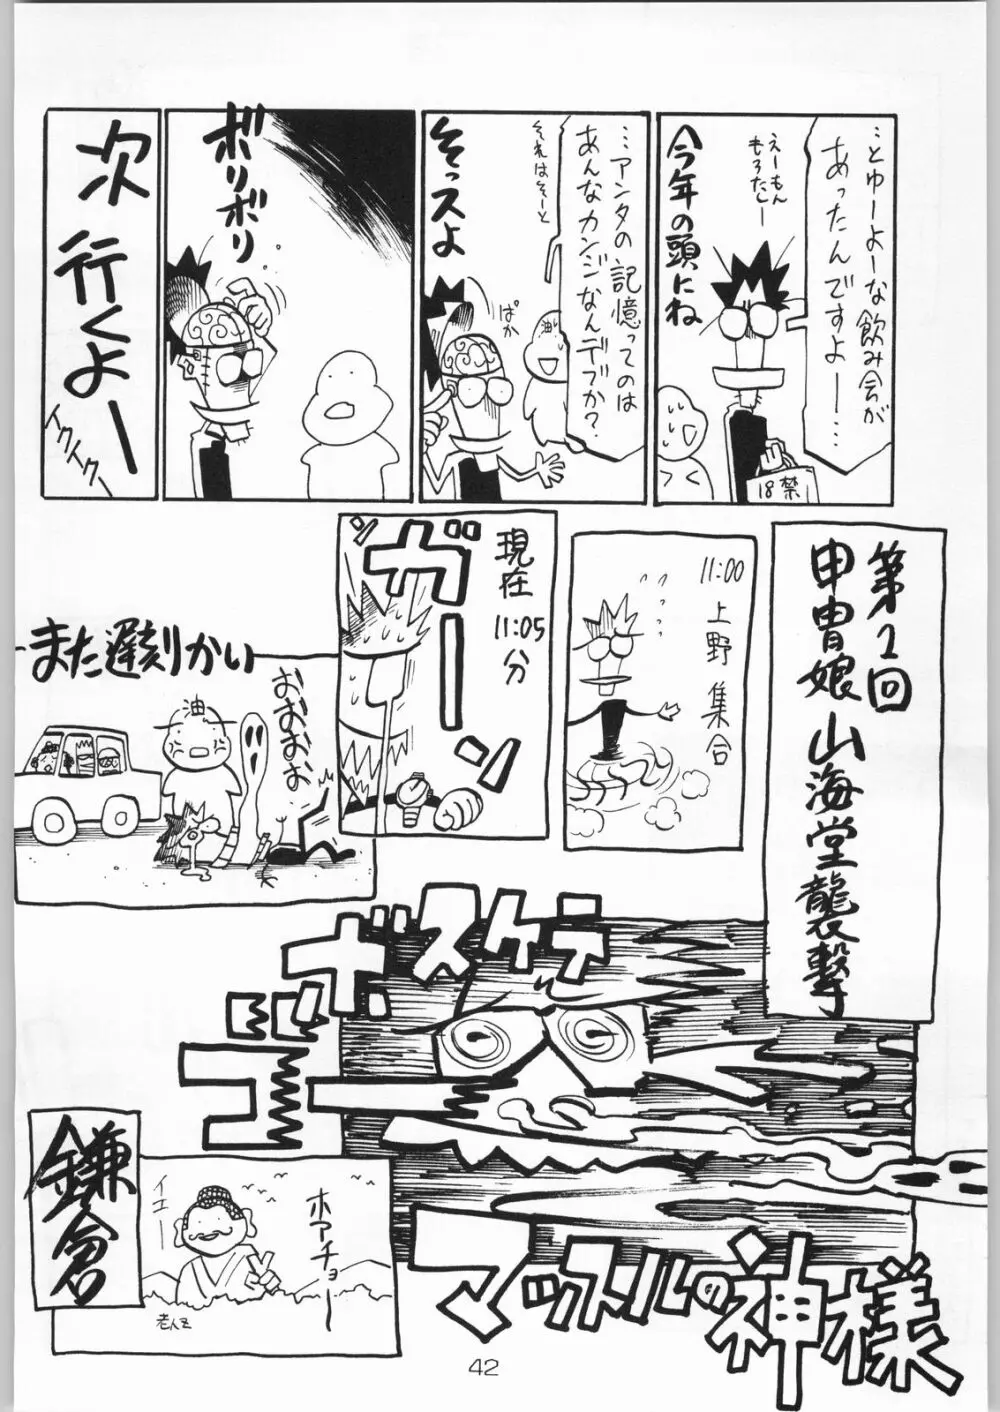 …とゆーよーな飲み会が
あったんですよー…
えーもん
もろたしー
今年の頭にね
18禁
…アンタの記憶ってのは
あんなカンジなんデブか?
それはそーと
そっスよ
ぱか
油
ボリボリ
次行くよー
イクイクー
第2回
甲冑娘山海堂襲撃
11:00
上野集合
現在
11:05分
ガーーン
また遅刻かい
油
おおおおお
ボスケテ
ゴーー
マッスルの神様
鎌倉
イエー
ホアチョー
42